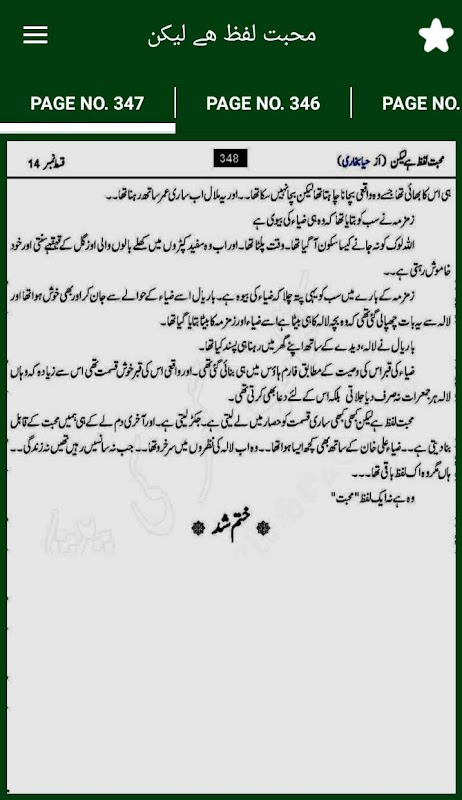 محبت لفظ ھے لیکن
PAGE NO. 347
PAGE NO. 346
PAGE NO.
محبت لفظ ہے لیکن (از حیا بخاری)
348
قسط نمبر 14
ہی اس کا بھائی تھا جسے وہ واقعی بچانا چاہتا تھا لیکن بچا نہیں سکا تھا۔۔ اور یہ ملال اب ساری عمر ساتھ رہنا تھا۔۔
زمزمہ نے سب کو بتایا تھا کہ وہ ہی ضیاء کی بیوی ہے
اللہ لوک کو نہ جانے کیسا سکون آ گیا تھا۔ وقت پلٹا تھا۔ اور اب وہ سفید کپڑوں میں کھلے بالوں والی اوز گل کے قہقہے سنتی اور خود
خاموش رہتی ہے۔۔
زمزمہ کے بارے میں سب کو یہی پتہ چلا کہ ضیاء کی بیوہ ہے۔ باریال اسے ضیاء کے حوالے سے جان کر اور بھی خوش ہوا تھا اور
لالہ سے یہ بات چھپالی گئی تھی کہ وہ بچہ لالہ کا ہی بیٹا ہے اسے ضیاء اور زمزمہ کا بیٹا بتایا گیا تھا۔
باریال نے لالہ، دیدے کے ساتھ اپنے گھر میں رہنا ہی پسند کیا تھا۔
ضیاء کی قبر اس کی وصیت کے مطابق فارم ہاؤس میں ہی بنائی گئی تھی۔ اور واقعی اس کی قبر خوش قسمت تھی اس سے زیادہ کہ وہاں
لالہ ہر جمعرات نہ صرف دیا جلاتی بلکہ اس کے لئے دعا بھی کرتی تھی۔
محبت لفظ ہے لیکن کبھی کبھی ساری قسمت کو حصار میں لے لیتی ہے۔ جکڑ لیتی ہے۔ اور آخری دم لے کے ہی ہمیں محبت کے قابل
بنا دیتی ہے۔۔ ضیاء علی خان کے ساتھ بھی کچھ ایسا ہوا تھا۔۔ وہ اب لالہ کی نظروں میں سرخرو تھا۔۔ جب نہ سانسیں رہیں تھیں نہ زندگی۔۔
ہاں مگر وہ اک لفظ باقی تھا۔۔۔
وہ ہے نہ ایک لفظ "محبت"
ختم شد